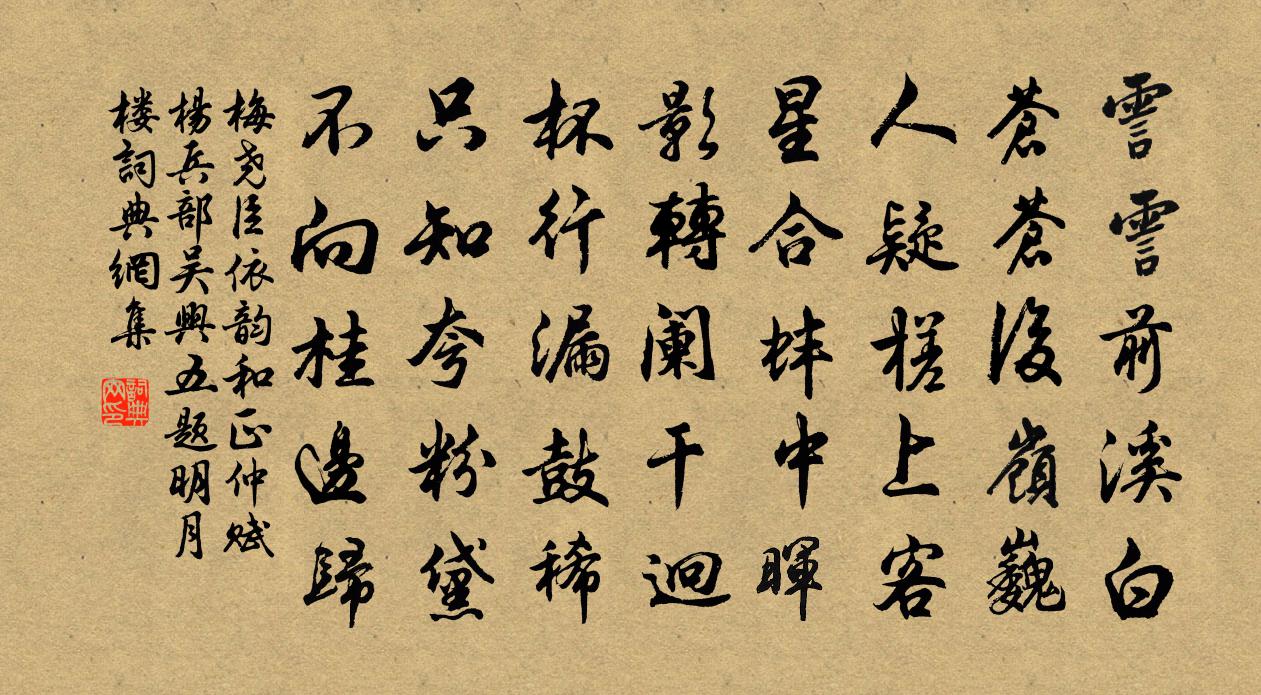 霅霅前溪白
蒼蒼後嶺巍
人疑槎上客
星合蚌中暉
影轉闌干迥
杯行漏鼓稀
只知夸粉黛
不向桂邊歸
梅尧臣依韵和正仲赋
楊兵部吴興五题明月
楼詞典網集
詞典
网印